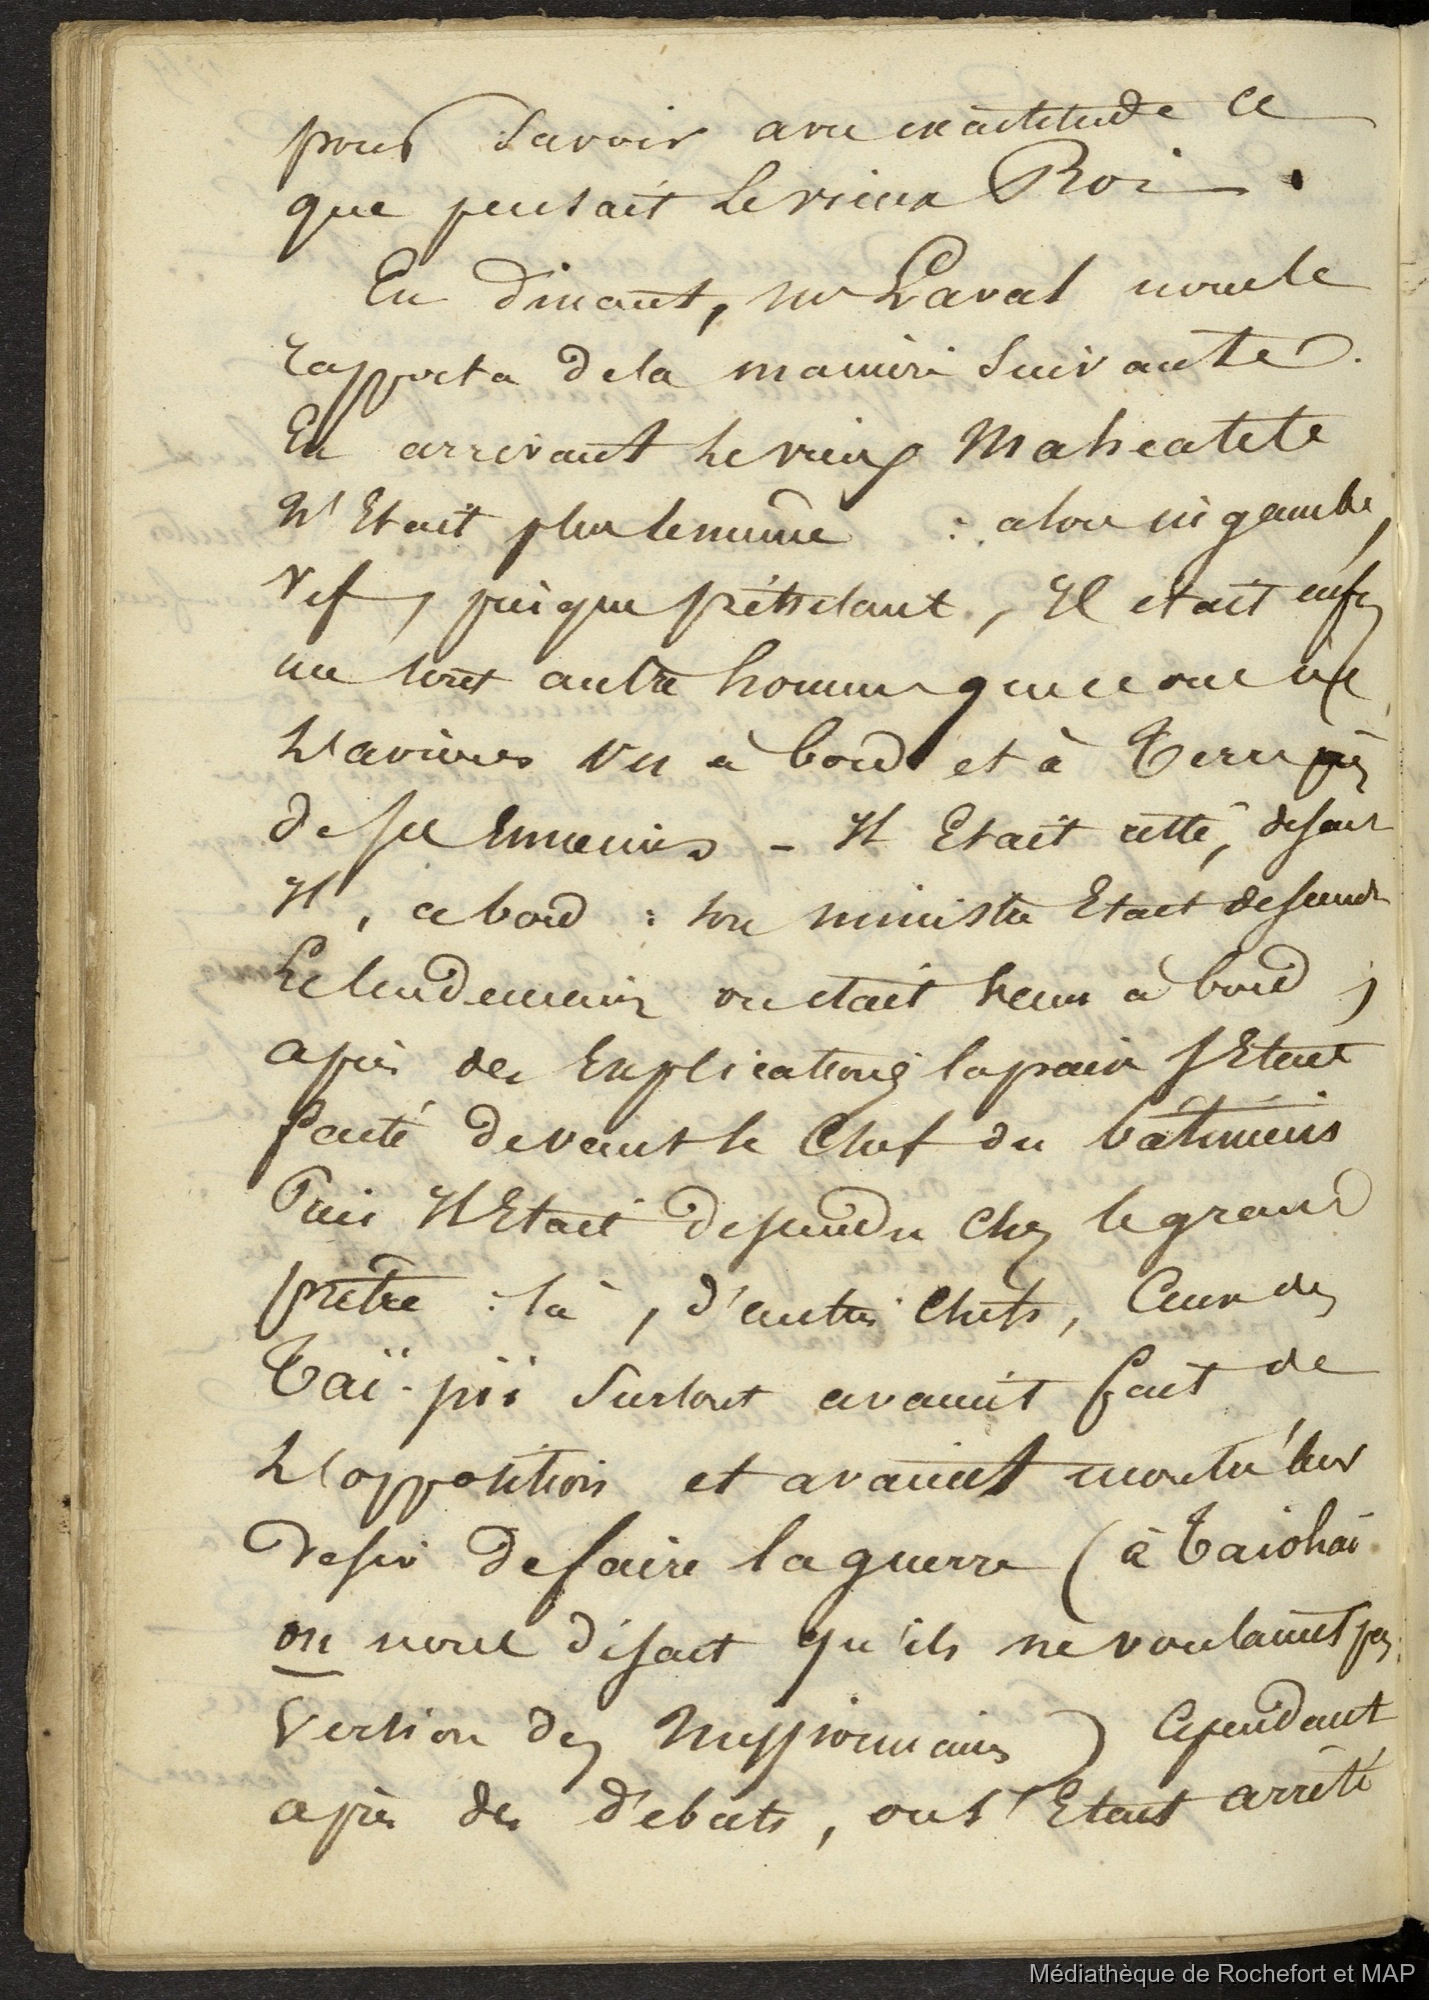 pour savoir avec exactitude ce
que pensait le vieux Roi.
En dinant, mr Laval nous le
rapporta de la manière suivante.
En arrivant le vieux Maheatete
n'Etait plus le même : alors ingambe,
vif, presque pétulant, Il était enfin
un tout autre homme que ce que
l'avions vu à bord et à Terre près
de ses Ennemis - Il Etait resté, disait
Il, a bord : son ministre Etait descendu
Le lendemain on était venu à bord ;
après des Explications la paix s'Etait
faite devant le Chef du bâtiment
Puis Il Etait descendu chez le grand
prêtre : là, d'autres chefs, Ceux des
Taï-pii surtout avaient fait de
l'opposition et avaient montré leur
desir de faire la guerre (à Taiohai
on nous disait qu'ils ne voulaient pas,
Version des Missionnaires) Cependant
après des débats, on s'Etait arrêté
Médiathèque de Rochefort et MAP